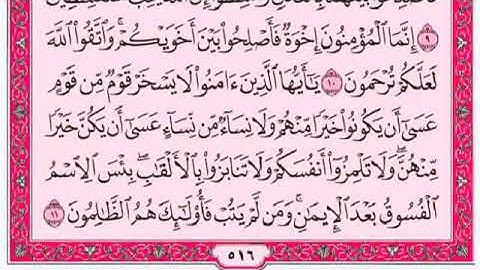 ۹ إِنَّمَا ٱلْمُؤْمِنُونَ إِخْوَةٌ فَأَصْلِحُوا۟ بَيْنَ أَخَوَيْكُمْ ۚ وَٱتَّقُوا۟ ٱللَّهَ
لَعَلَّكُمْ تُرْحَمُونَ ۱۰ يَـٰٓأَيُّهَا ٱلَّذِينَ ءَامَنُوا۟ لَا يَسْخَرْ قَوْمٌ مِّن قَوْمٍ
عَسَىٰٓ أَن يَكُونُوا۟ خَيْرًا مِّنْهُمْ وَلَا نِسَآءٌ مِّن نِّسَآءٍ عَسَىٰٓ أَن يَكُنَّ خَيْرًا
مِّنْهُنَّ ۖ وَلَا تَلْمِزُوٓا۟ أَنفُسَكُمْ وَلَا تَنَابَزُوا۟ بِٱلْأَلْقَـٰبِ ۖ بِئْسَ ٱلِٱسْمُ
ٱلْفُسُوقُ بَعْدَ ٱلْإِيمَـٰنِ ۚ وَمَن لَّمْ يَتُبْ فَأُو۟لَـٰٓئِكَ هُمُ ٱلظَّـٰلِمُونَ ۱۱
٥١٦